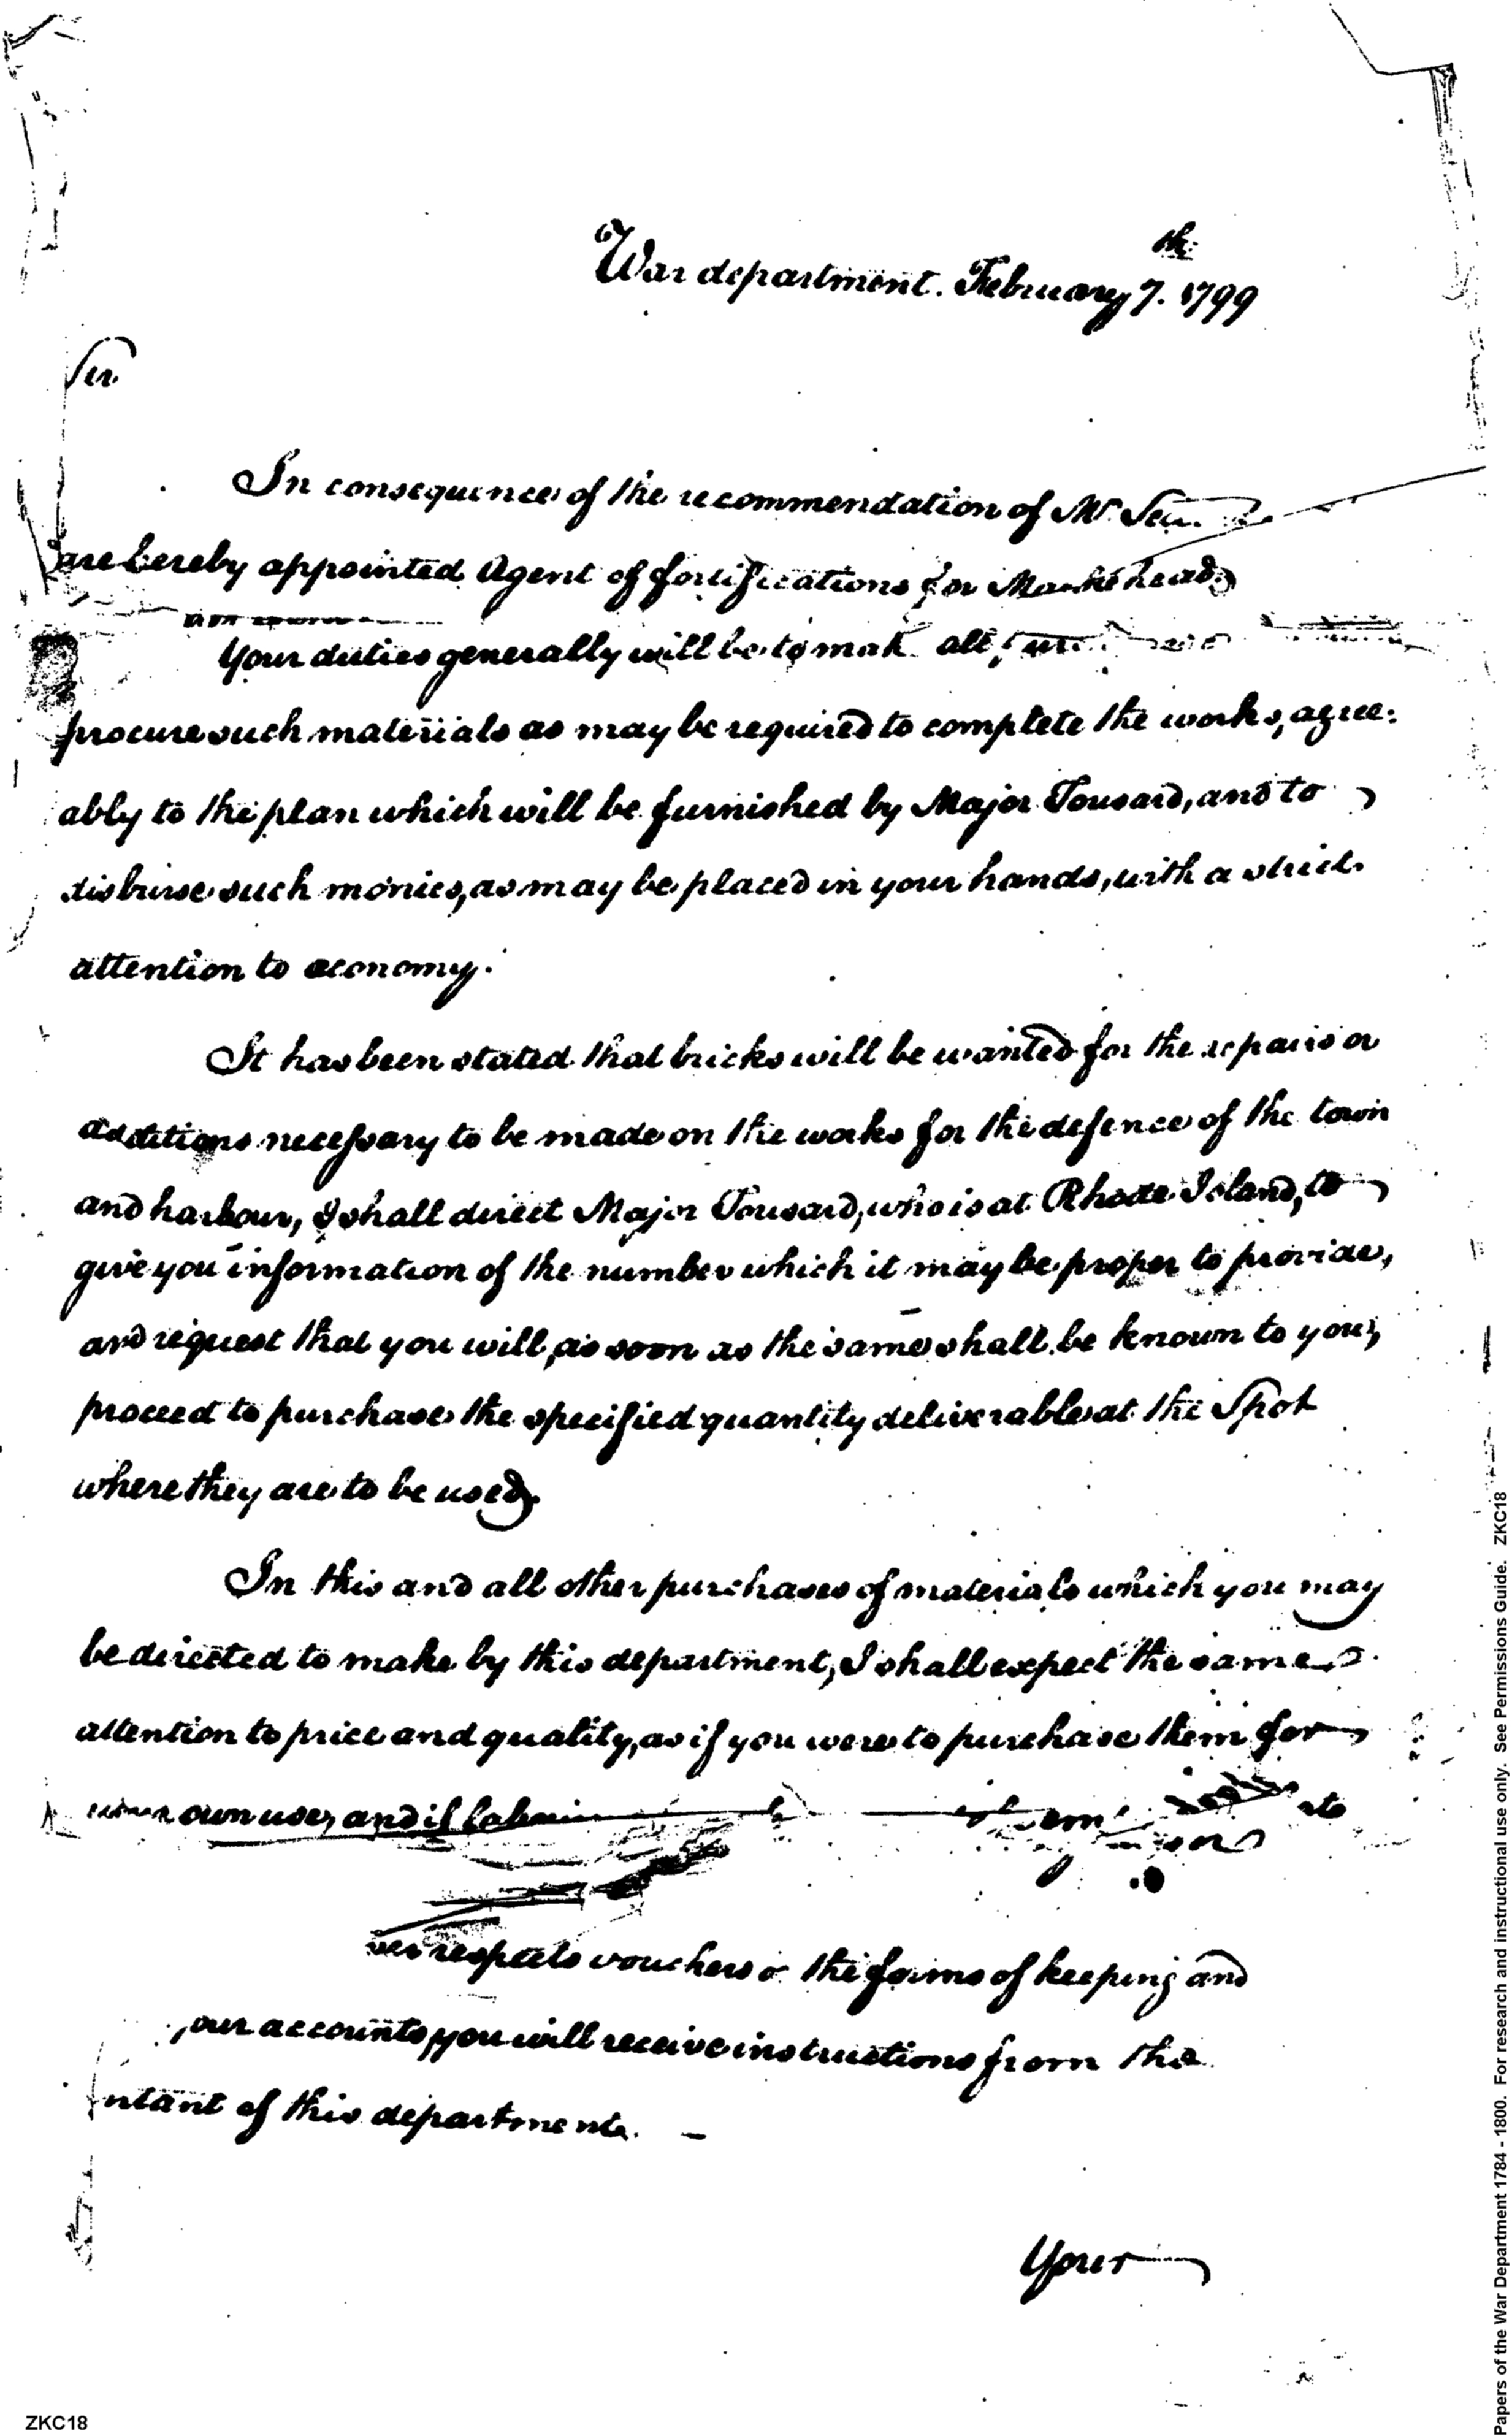 War department. February 7.th 1799
Sir.
In consequence of the recommendation of Mr.
are hereby appointed Agent of fortifications for Marblehead.
Your duties generally will be to make all
procure such materials as may be required to complete the works, agree-
ably to the plan which will be furnished by Major Tousard, and to
disburse such monies, as may be placed in your hands, with a strict
attention to œconomy.
It has been stated that bricks will be wanted for the repairs or
additions necessary to be made on the works for the defence of the town
and harbour, I shall direct Major Tousard, who is at Rhode Island, to
give you information of the number which it may be proper to provide,
and request that you will, as soon as the same shall be known to you,
proceed to purchase the specified quantity deliverable at the Spot
where they are to be used.
In this and all other purchases of materials which you may
be directed to make by this department, I shall expect the same
attention to price and quality, as if you were to purchase them for
your own use, and if
respects vouchers or the forms of keeping and
our accounts, you will receive instructions from the
ntant of this department. —
Yours
ZKC18
Papers of the War Department 1784 - 1800. For research and instructional use only. See Permissions Guide. ZKC18